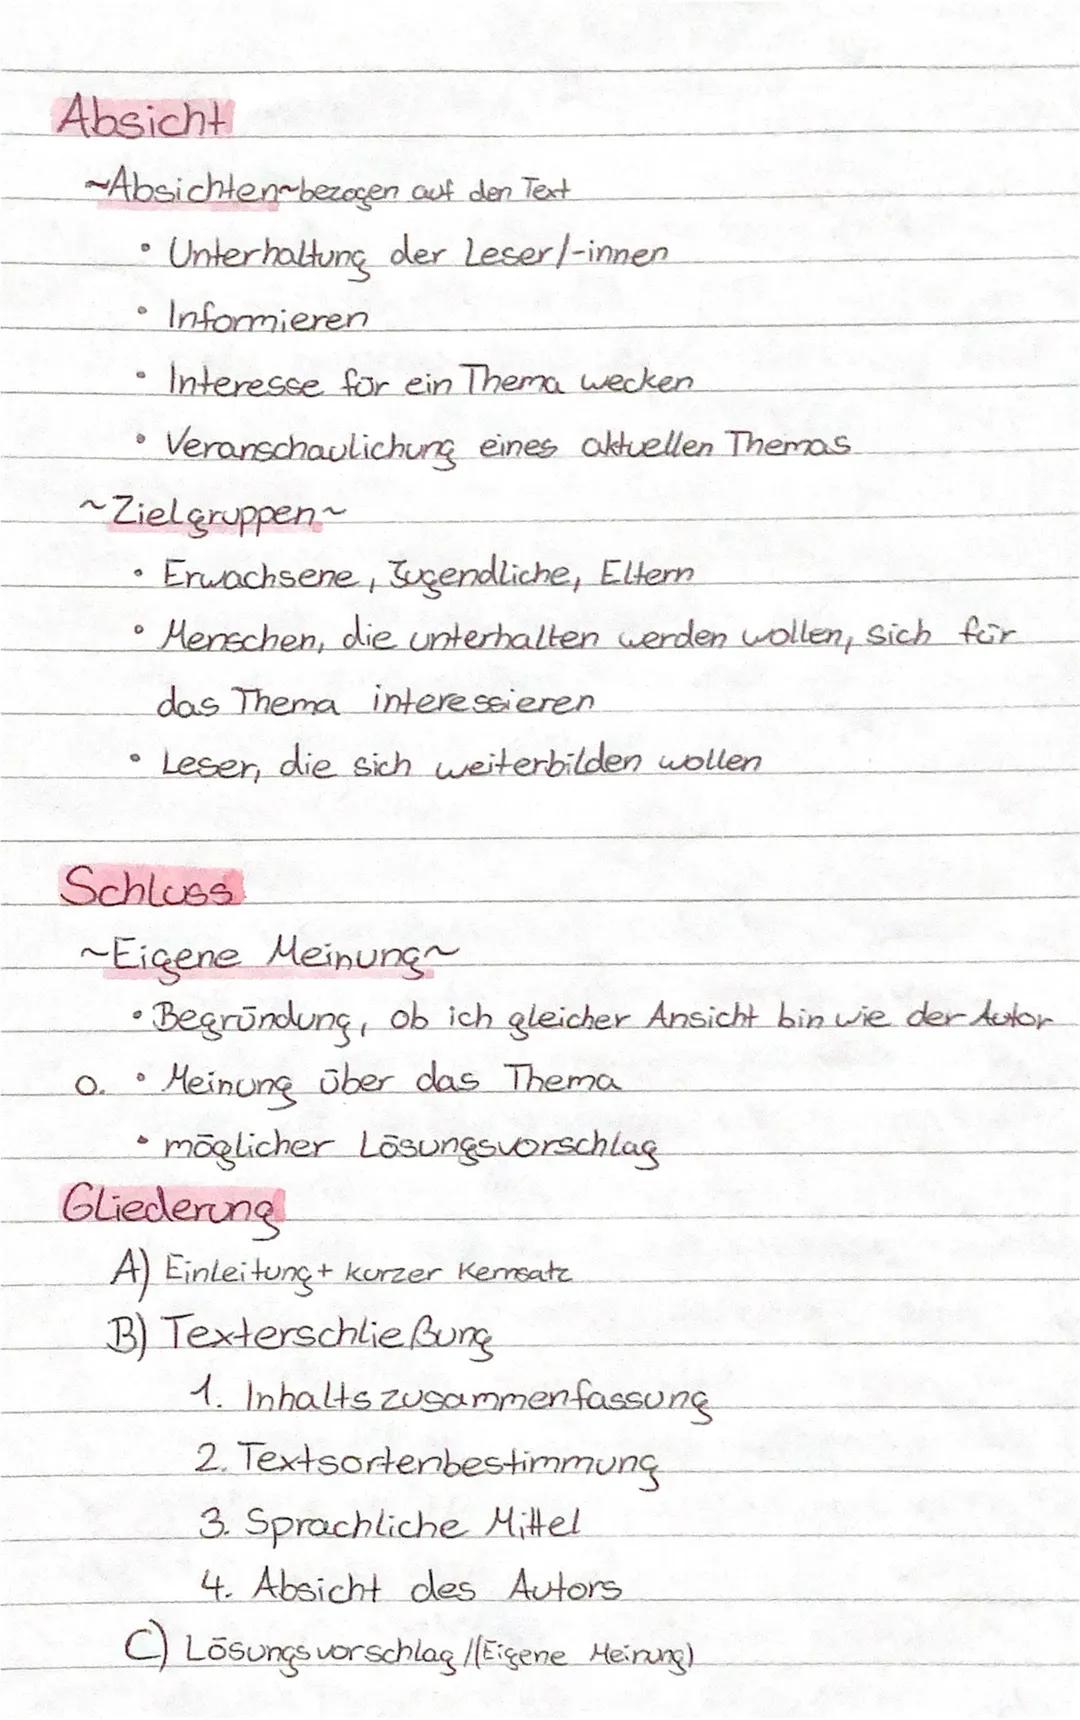 Absicht
~Absichten~bezogen auf den Text
• Unterhaltung der Leser/-innen
• Informieren
• Interesse für ein Thema wecken
• Veranschaulichung eines aktuellen Themas
~Zielgruppen~
• Erwachsene, Jugendliche, Eltern
• Menschen, die unterhalten werden wollen, sich für
das Thema interessieren
• Leser, die sich weiterbilden wollen
Schluss
~Eigene Meinung~
• Begründung, ob ich gleicher Ansicht bin wie der Autor
o. • Meinung über das Thema
• möglicher Lösungsvorschlag
Gliederung
A) Einleitung + kurzer Kernsatz
B) Texterschließung
1. Inhaltszusammenfassung
2. Textsortenbestimmung
3. Sprachliche Mittel
4. Absicht des Autors
C) Lösungsvorschlag /(Eigene Meinung)